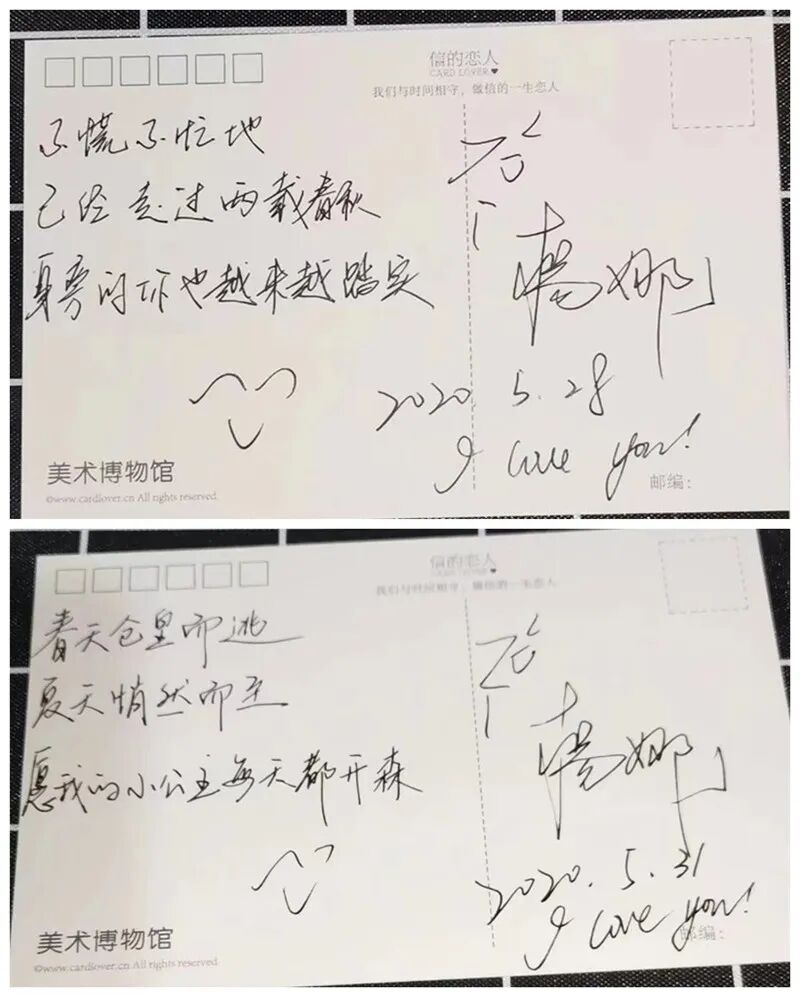 信的恋人
CARD LOVER
我们与时间相守，做信的一生恋人
不慌不忙地
已经走过两载春秋
身旁的你也越来越踏实
杨娜
2020.5.28
I love you!
美术博物馆
©www.cardlover.cn All rights reserved.
邮编：
信的恋人
CARD LOVER
我们与时间相守，做信的一生恋人
春天仓皇而逃
夏天悄然而至
愿我的小公主每天都开森
杨娜
2020.5.31
I love you!
美术博物馆
©www.cardlover.cn All rights reserved.
邮编：